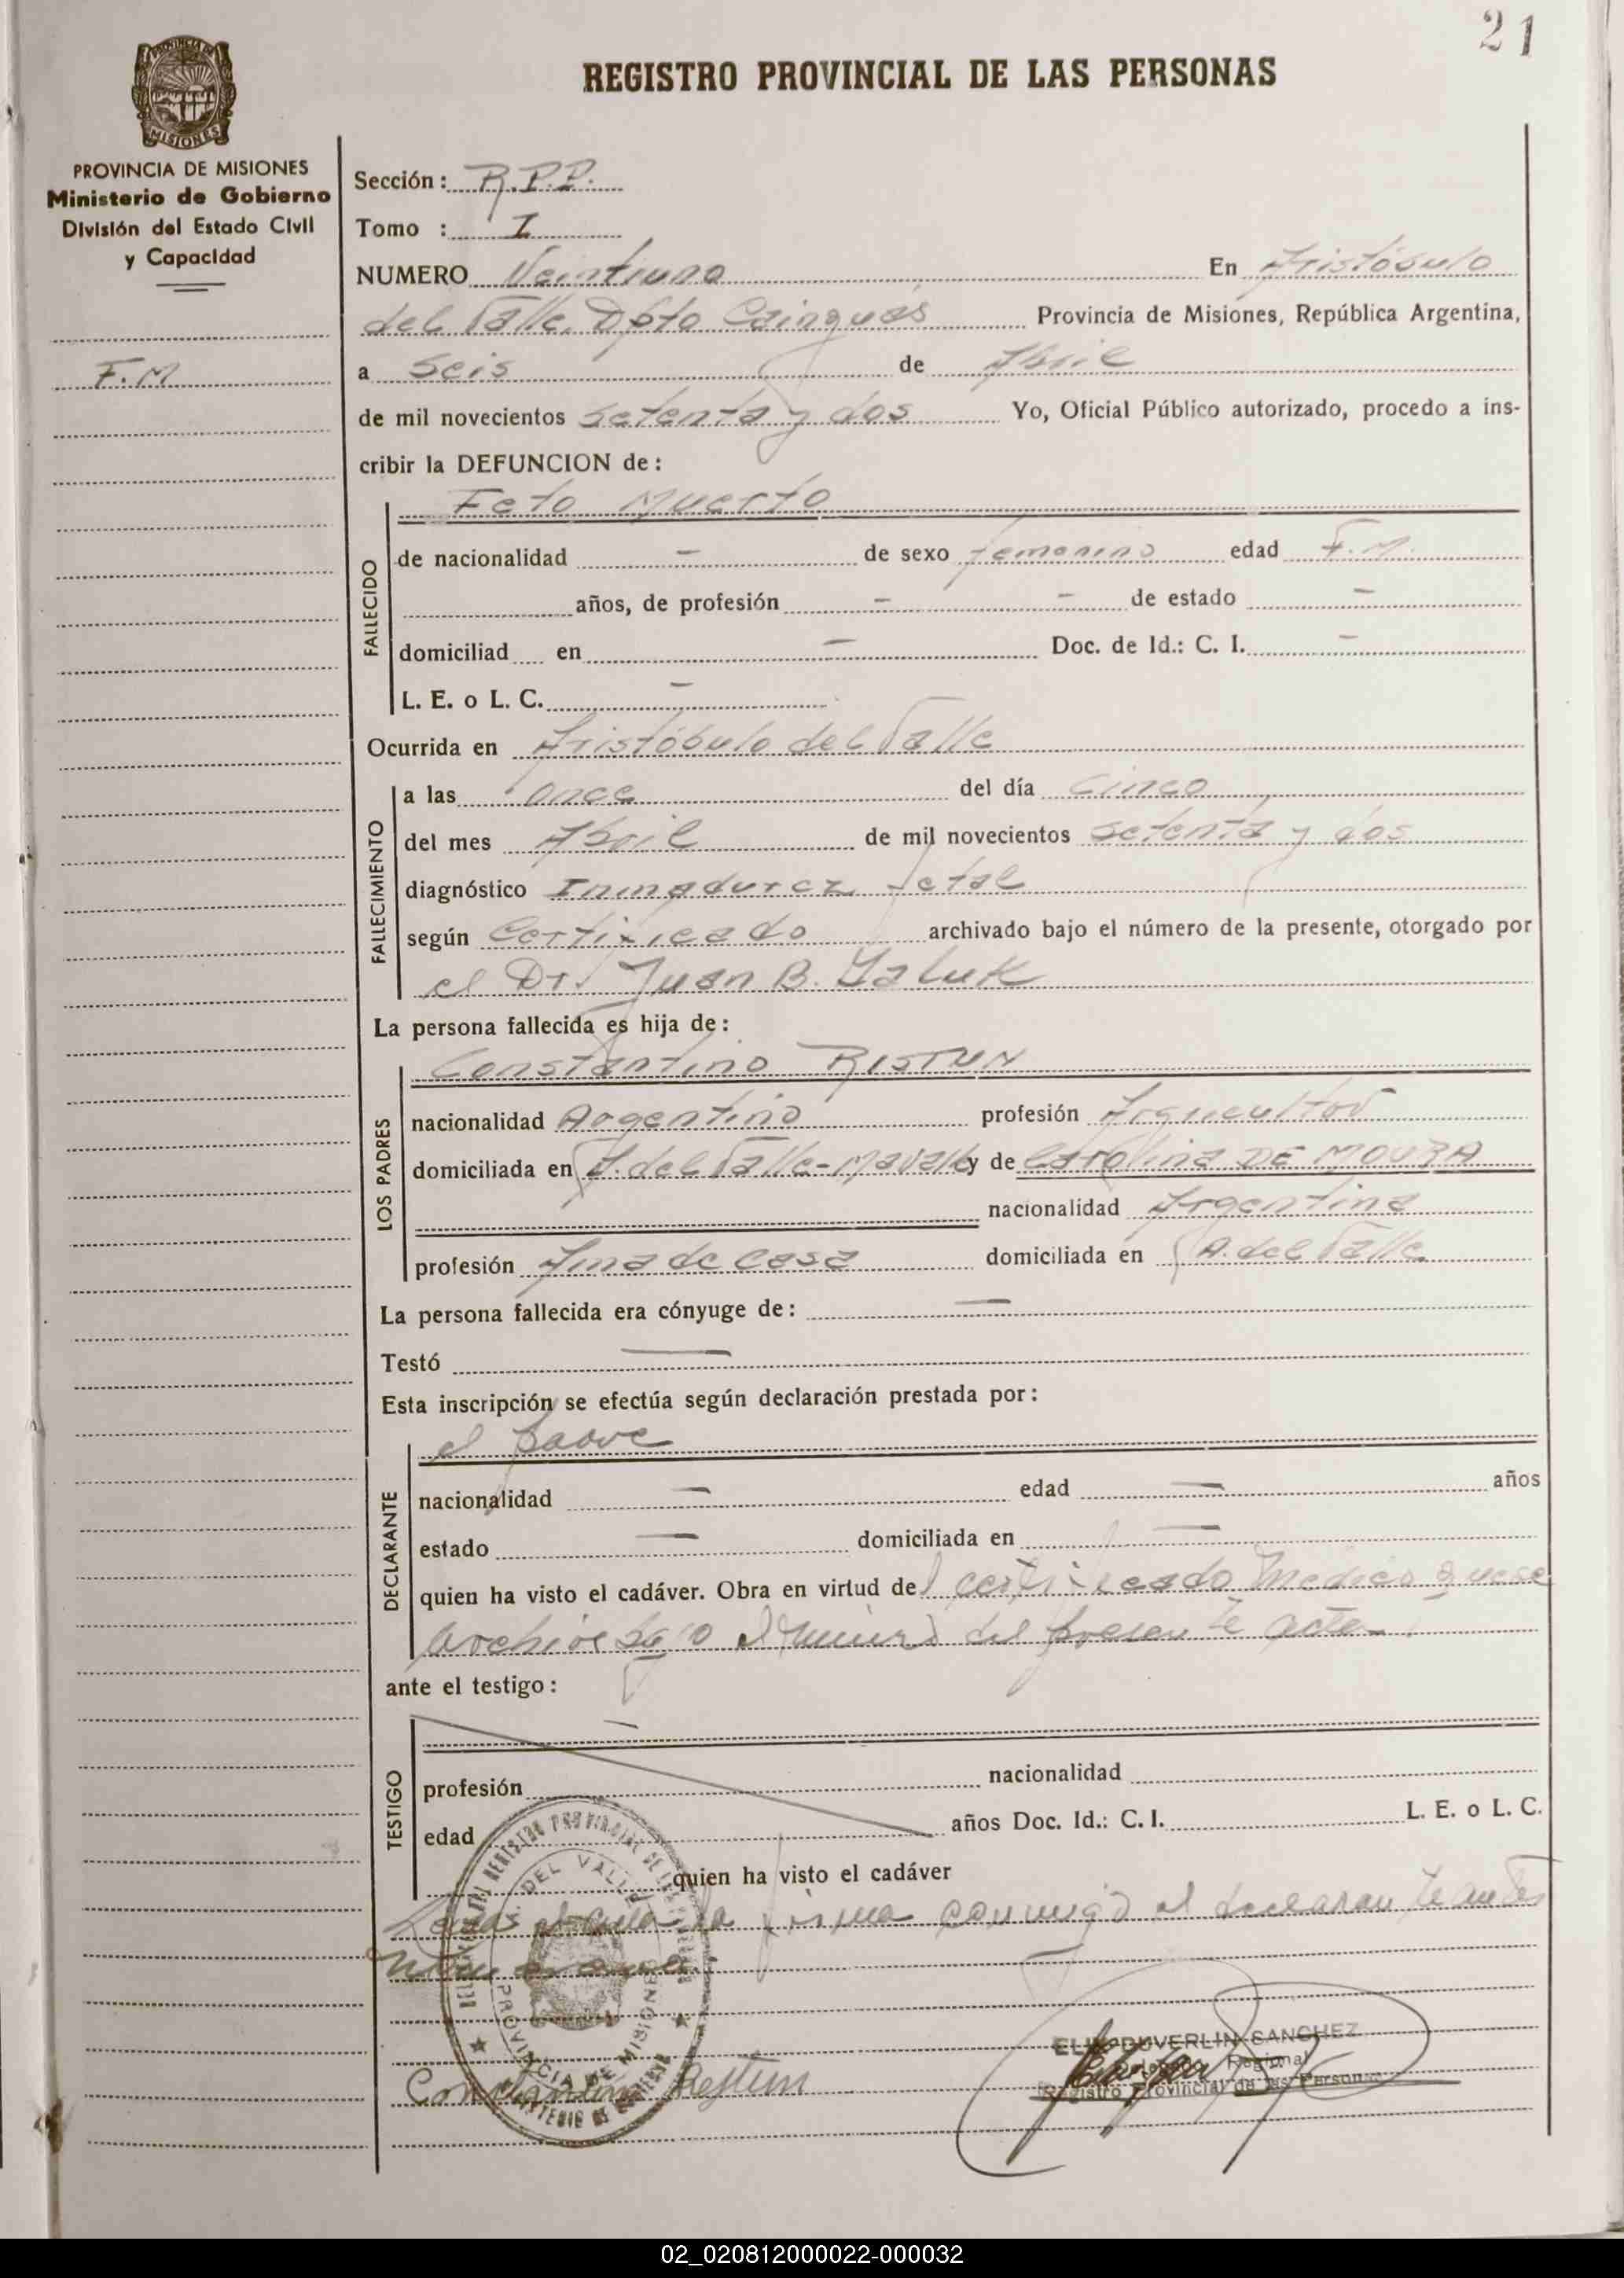 21
REGISTRO PROVINCIAL DE LAS PERSONAS
PROVINCIA DE MISIONES
Ministerio de Gobierno
División del Estado Civil
y Capacidad
F.M
Sección: R.P.P.
Tomo : I
NUMERO Veintiuno En Aristóbulo
del Valle, Dpto Cainguás Provincia de Misiones, República Argentina,
a seis de Abril
de mil novecientos setenta y dos Yo, Oficial Público autorizado, procedo a ins-
cribir la DEFUNCION de:
Feto Muerto
FALLECIDO
de nacionalidad - de sexo femenino edad F.M.
años, de profesión - - de estado -
domiciliad en - Doc. de Id.: C. I. -
L. E. o L. C. -
Ocurrida en Aristóbulo del Valle
FALLECIMIENTO
a las once del día cinco
del mes Abril de mil novecientos setenta y dos
diagnóstico Inmadurez fetal
según Certificado archivado bajo el número de la presente, otorgado por
el Dr. Juan B. Yaluk
La persona fallecida es hija de:
LOS PADRES
Constantino RISTUN
nacionalidad Argentino profesión
domiciliada en A. del Valle- y de Carolina DE MOURA
nacionalidad Argentina
profesión Ama de casa domiciliada en A. del Valle
La persona fallecida era cónyuge de: —
Testó —
Esta inscripción se efectúa según declaración prestada por:
DECLARANTE
el padre
nacionalidad — edad — años
estado — domiciliada en —
quien ha visto el cadáver. Obra en virtud del certificado médico que se
archiva bajo el número del presente acta.
ante el testigo:
TESTIGO
profesión nacionalidad
edad años Doc. Id.: C. I. L. E. o L. C.
quien ha visto el cadáver
Leída el acta la firma conmigo el declarante antes
A. DEL VALLE
PROVINCIA DE MISIONES
ELIX DUVERLIN SANCHEZ
Delegado Regional
Registro Provincial de las Personas
Constantino Restun
02_020812000022-000032